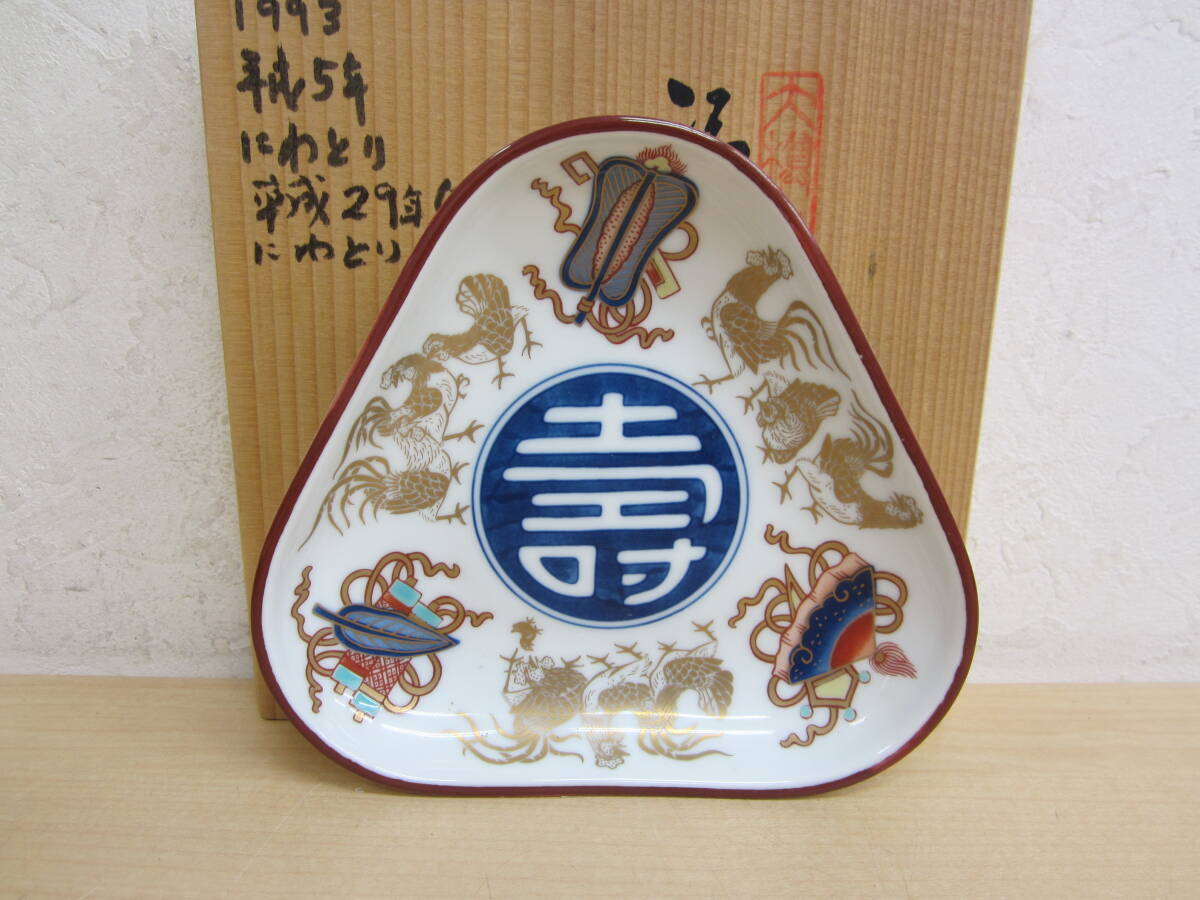 1993
平成5年
にわとり
平成29年
にわとり
寿